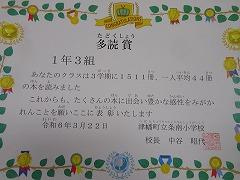 たどくしょう
多読賞
1年3組
あなたのクラスは3学期に1511冊、一人平均44冊
の本を読みました
これからも、たくさんの本に出会い豊かな感性をみが
かれんことを願いここに表彰いたします
令和6年3月22日
津幡町立条南小学校
校長 中谷 昭代